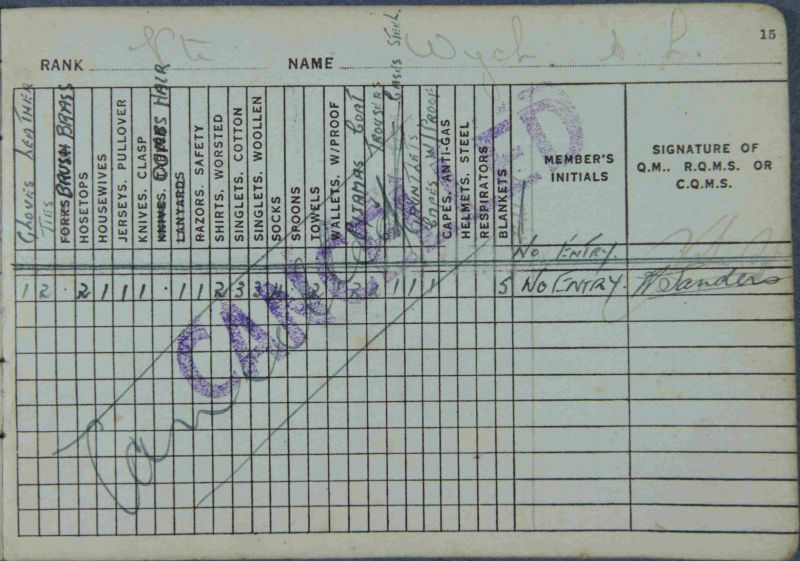 15
RANK Pte NAME Wych. A. L.
GLOVES LEATHER
TIES
FORKS BRUSH BRASS
HOSETOPS
HOUSEWIVES
JERSEYS, PULLOVER
KNIVES, CLASP
KNIVES, COMBS HAIR
LANYARDS
RAZORS, SAFETY
SHIRTS, WORSTED
SINGLETS, COTTON
SINGLETS, WOOLLEN
SOCKS
SPOONS
TOWELS
WALLETS, W/PROOF
PYJAMAS COAT
TROUSERS
GAUNTLETS
CAPES W/PROOF
CAPES, ANTI-GAS
HELMETS, STEEL
RESPIRATORS
BLANKETS
MEMBER'S INITIALS
SIGNATURE OF
Q.M., R.Q.M.S. OR
C.Q.M.S.
No ENTRY.
1 2 2 1 1 1 1 1 2 3 3 4 2 2 2 1 1 1 5 No ENTRY. Sanders
CANCELLED
Cancelled